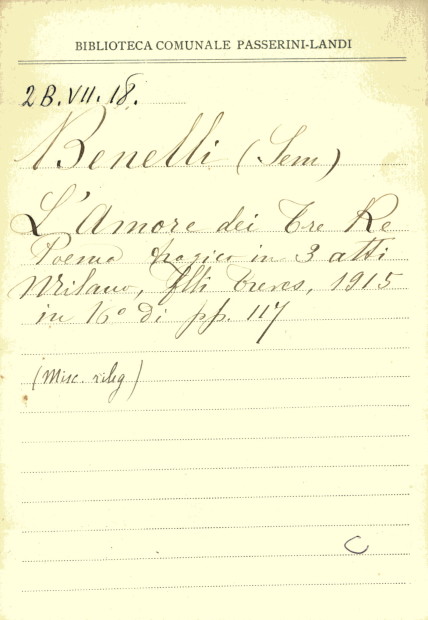 BIBLIOTECA COMUNALE PASSERINI-LANDI
2B.VII.18.
Benelli (Sem)
L'Amore dei Tre Re
Poema tragico in 3 atti
Milano, flli Treves, 1915
in 16° di pp. 117
(Misc. rileg)
C